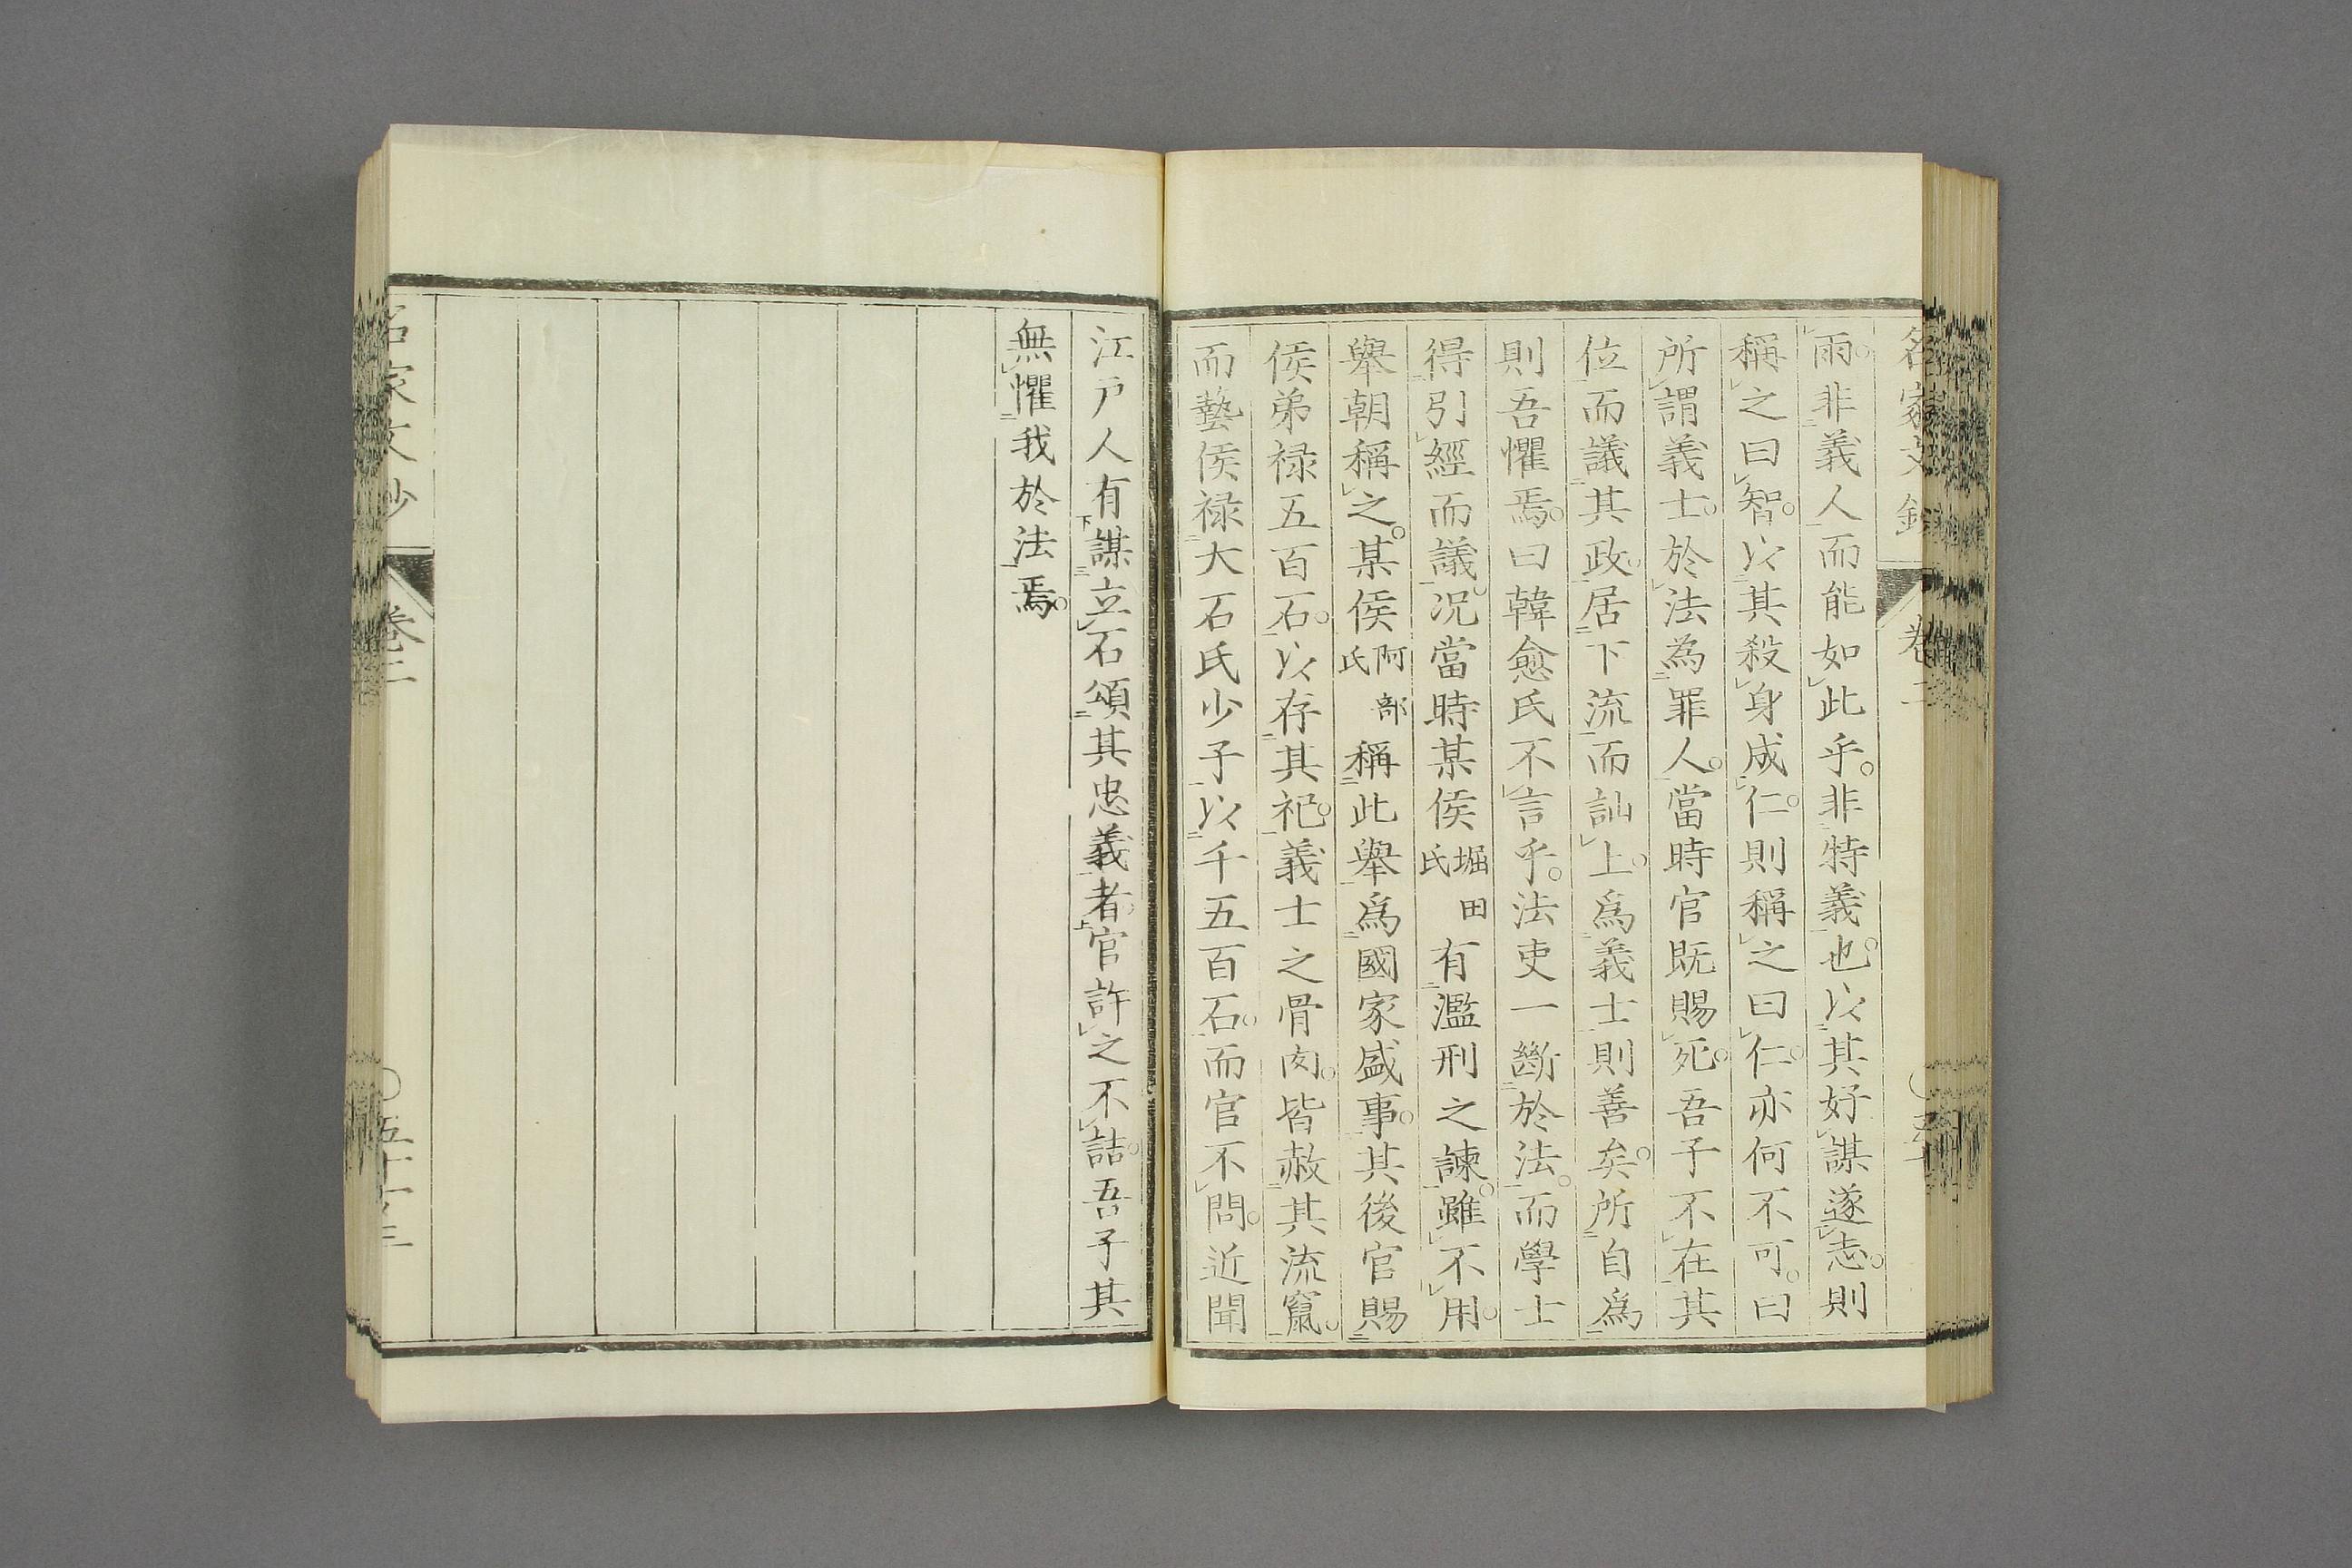 雨。非義人而能如此乎。非特義也。以其好謀遂志。則
稱之曰智。以其殺身成仁。則稱之曰仁。亦何不可。曰
所謂義士。於法為罪人。當時官既賜死。吾子不在其
位而議其政。居下流而訕上。爲義士則善矣。所自爲
則吾懼焉。曰韓愈氏不言乎。法吏一斷於法。而學士
得引經而議。况當時某侯堀田氏有濫刑之諫。雖不用。
舉朝稱之。某侯阿部氏稱此舉爲國家盛事。其後官賜
侯弟禄五百石。以存其祀。義士之骨肉。皆赦其流竄。
而藝侯禄大石氏少子以千五百石。而官不問。近聞
江戸人有謀立石頌其忠義者。官許之不詰。吾子其
無懼我於法焉。
名家文鈔
卷二
名家文鈔
卷二